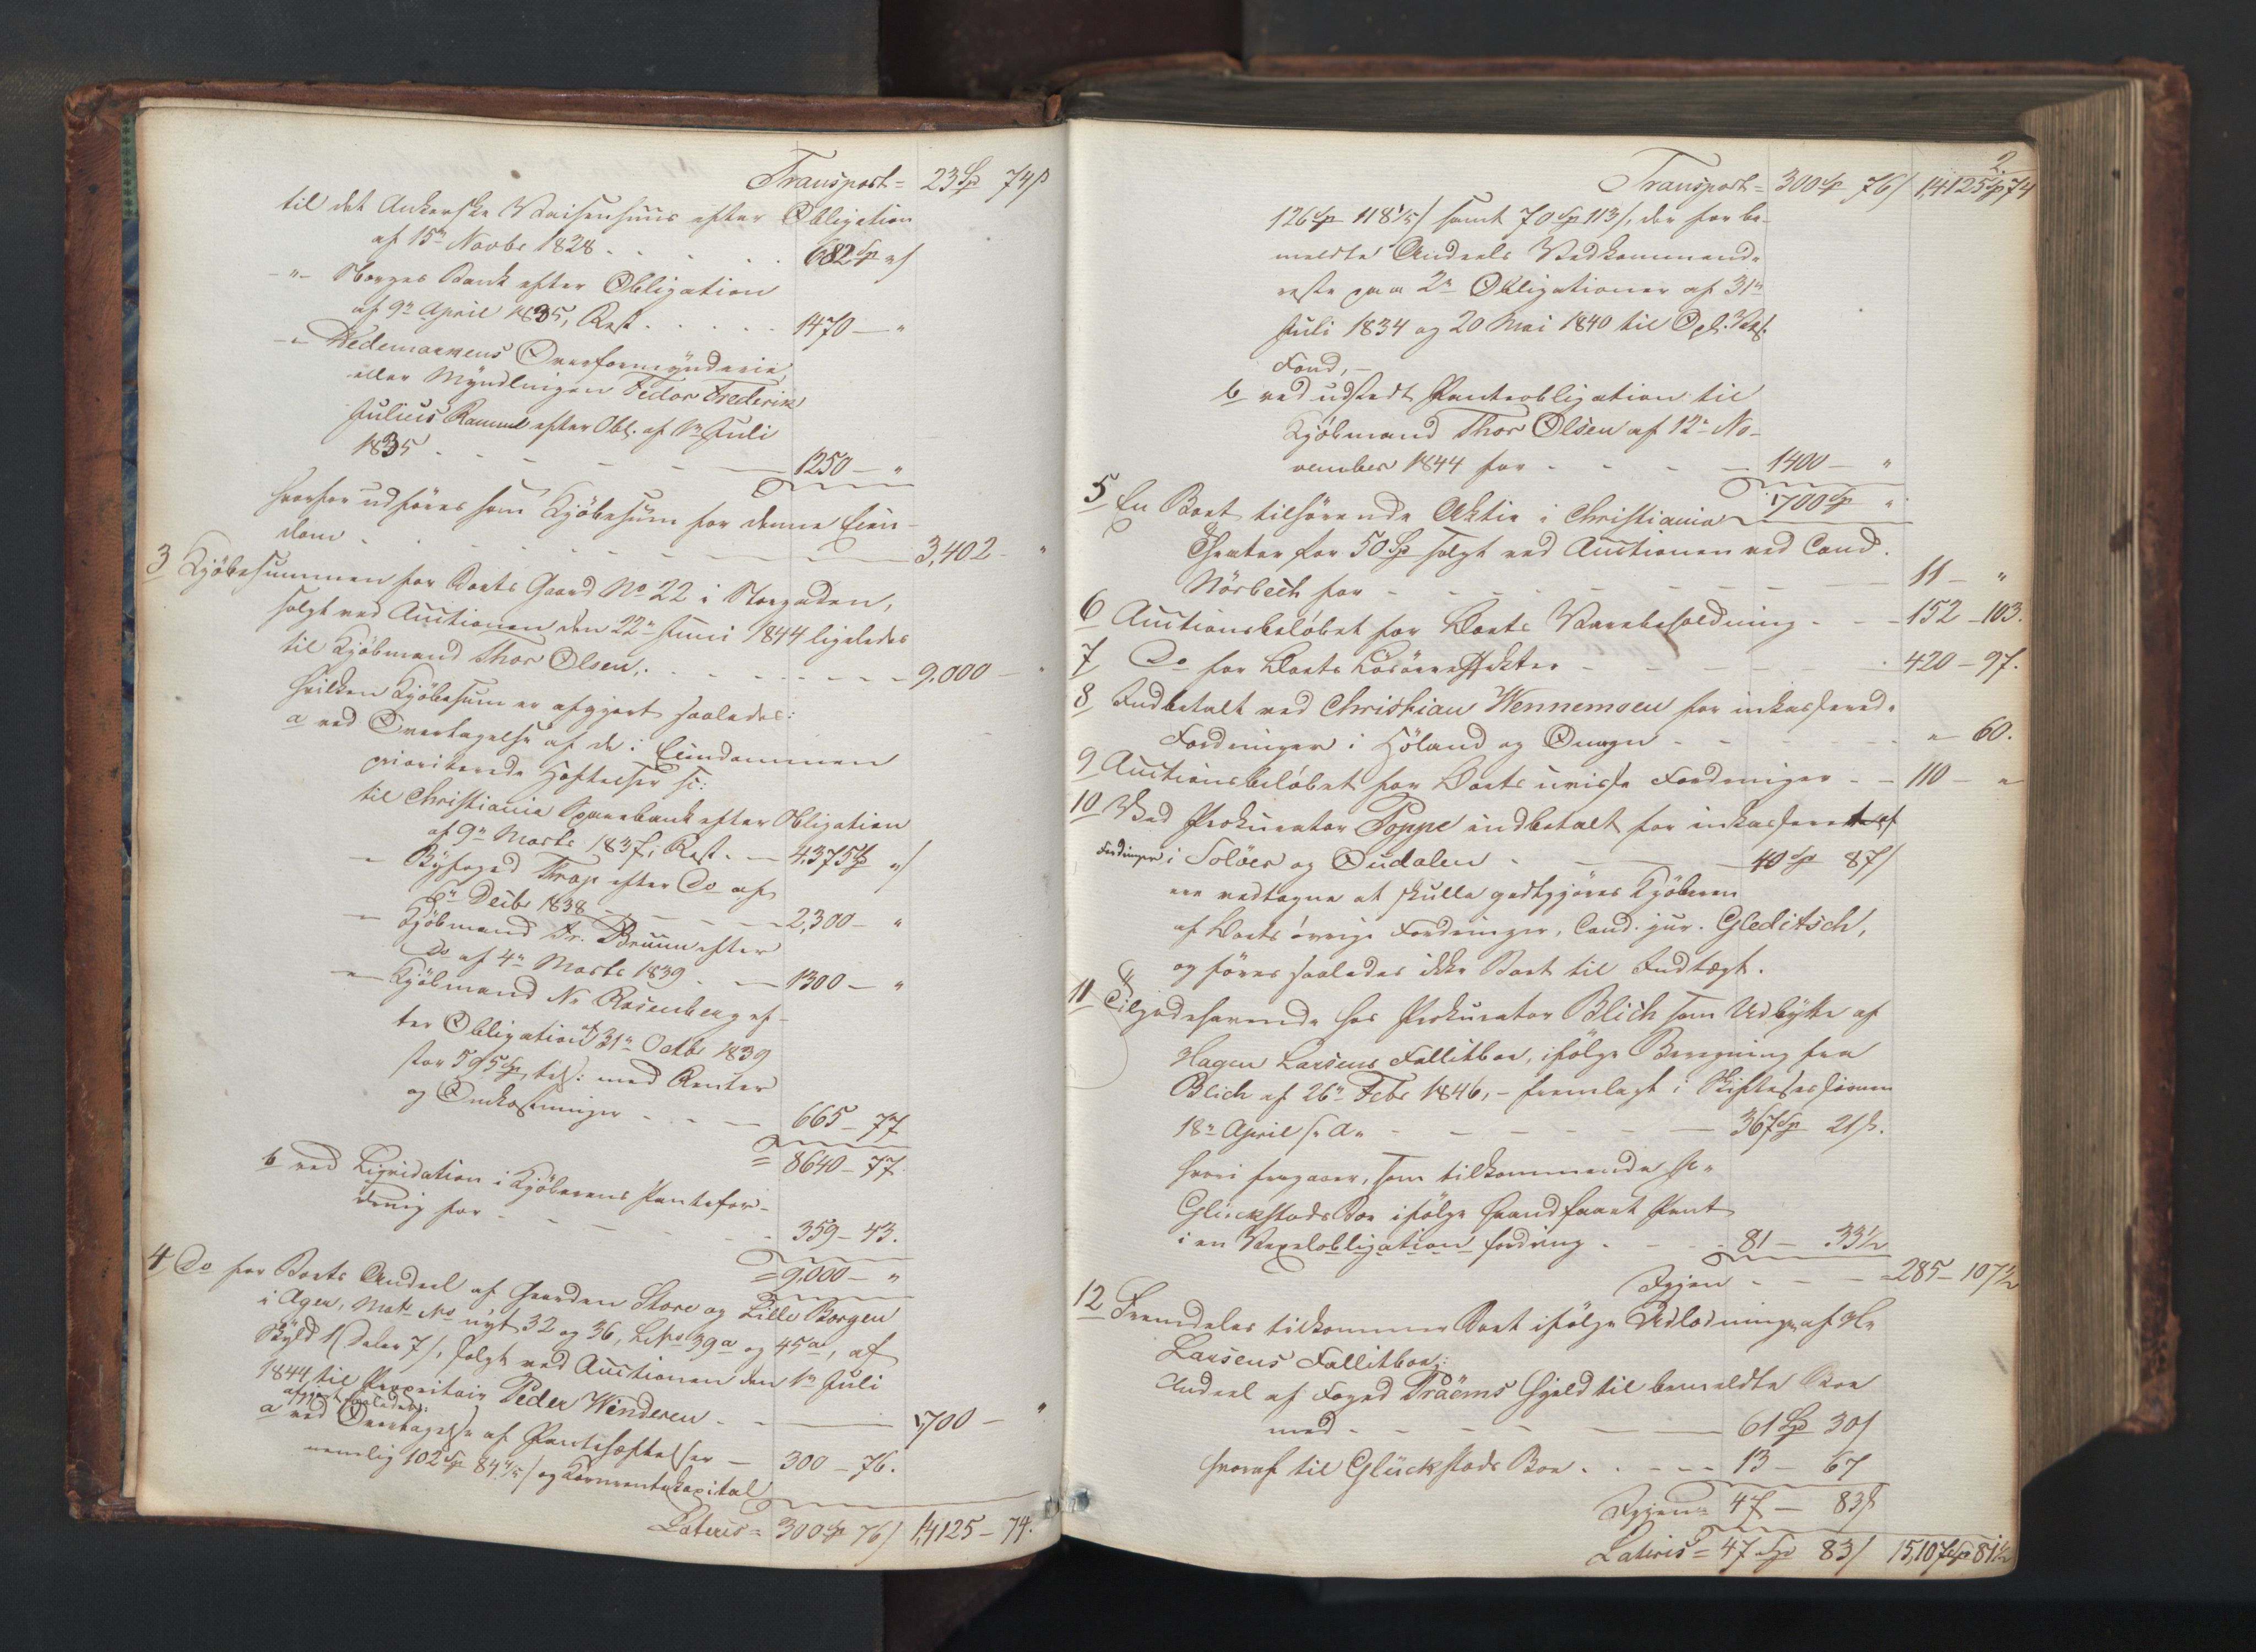 Transport = 23 Sp 74 ß
til det Ankerske Waisenhuus efter Obligation
af 15n Novbr 1828 . . . . . 682 Sp " ß
-"- Norges Bank efter Obligation
af 9n April 1835, Rest . . . . . 1470 — "
-"- Hedemarkens Overformynderie,
eller Myndlingen Fedor Frederik
Julius Ramm efter Obl. af 1n Juli
1835 - - - - - - 1250 — "
hvorfor udføres som Kjøbesum for denne Eien-
dom . . - - - - - - - 3,402 - "
3 Kjøbesummen for Boets Gaard No 22 i Storgaden,
solgt ved Auctionen den 22n Juni 1844 ligeledes
til Kjøbmand Thor Olsen, . . - - - - - - 9.000 — "
hvilken Kjøbesum er afgjort saaledes:
a ved Overtagelse af de i Eiendommen
prioriterede Hæftelser sc:
til Christiania Sparebank efter Obligation
af 9n Marts 1837, Rest . — 4,375 Sp " ß
-"- Byfoged Thrap efter Do af
6n Decbr 1838 - - - - - 2,300 — "
-"- Kjøbmand Fr. Bruun efter
Do af 4n Marts 1839 . - — 1300 — "
-"- Kjøbmand N. Rosenberg ef-
ter Obligation af 31n Octbr 1839
stor 595 Sp, tils: med Renter
og Omkostninger - - - — 665 — 77
= 8640 — 77.
b ved Liqvidation i Kjøberens Pantefor-
dring for - - - - - - 359 — 43.
= 9,000 — "
4 Do for Boets Andeel af Gaarden Store og Lille Borgen
i Ager, Matr No nyt 32 og 36, Lbno 39a og 45a, af
Skyld 1 Daler 7 ß, solgt ved Auctionen den 1n Juli
1844 til Propritair Peder Winderen - - — 1,700 — "
afgjort saaledes:
a ved Overtagelse af Pantehæftelser — 300 — 76.
nemlig 102 Sp 84 4/5 ß og Kornrentekapital
Lateris = 300 Sp 76 ß 14,125 — 74.
2.
Transport = 300 Sp 76 ß 14,125 Sp 74
126 Sp 118 1/5 ß samt 70 Sp 113 ß, der for be-
meldte Andeels Vedkommende
reste paa 2n Obligationer af 31n
Juli 1834 og 20 Mai 1840 til Opl.
Fond, —
b ved udstedt Panteobligation til
Kjøbmand Thor Olsen af 12n No-
vember 1844 for - - - — 1400 — "
1700 Sp "
5 En Boet tilhørende Aktie i Christiania
Theater for 50 Sp solgt ved Auctionen ved Cand.
Nörbech for - - - - - - — 11 — "
6 Auctionsbeløbet for Boets Varebeholdning - - - 152 — 103.
7 Do for Boets Løsøreeffekter - - - - - - 420 — 97.
8 Indbetalt ved Christian Wennemoen for inkasserede
Fordringer i Höland og - - - - - " — 60.
9 Auctionsbeløbet for Boets uvisse Fordringer - - 110 — "
10 Ved Prokurator Poppe indbetalt for inkasserede af
Fordringer i Solöer og Oudalen - — — 40 Sp 87 ß
ere vedtagne at skulle godtgjøres Kjøberen
af Boets øvrige Fordringer, Cand. jur. Gleditsch,
og føres saaledes ikke Boet til Indtægt.
11 Tilgodehavende hos Prokurator Blich som Udbytte af
Hagen Larsens Fallitboe, ifølge Beregning fra
Blich af 26n Febr 1846, - fremlagt i Skiftesessionen
18n April s. A. - - - - - - 367 Sp 21 ß.
hvori fragaaer, som tilkommende
Glückstads Boe ifølge haandfaaet Pant
i en Vexelobligations fordring . - - 81 — 33 1/2
Igjen - - - = 285 — 107 1/2
12 Fremdeles tilkommer Boet ifølge Udlodningen af H.
Larsens Fallitboe:
Andeel af Foged Präems Gjeld til bemeldte Boe
med - - - - - — 61 Sp 30 ß
hvoraf til Glückstads Boe . . - - - 13 — 67
Igjen = 47 — 83 ß
Lateris = 47 Sp 83 ß 15,107 Sp 81 1/2